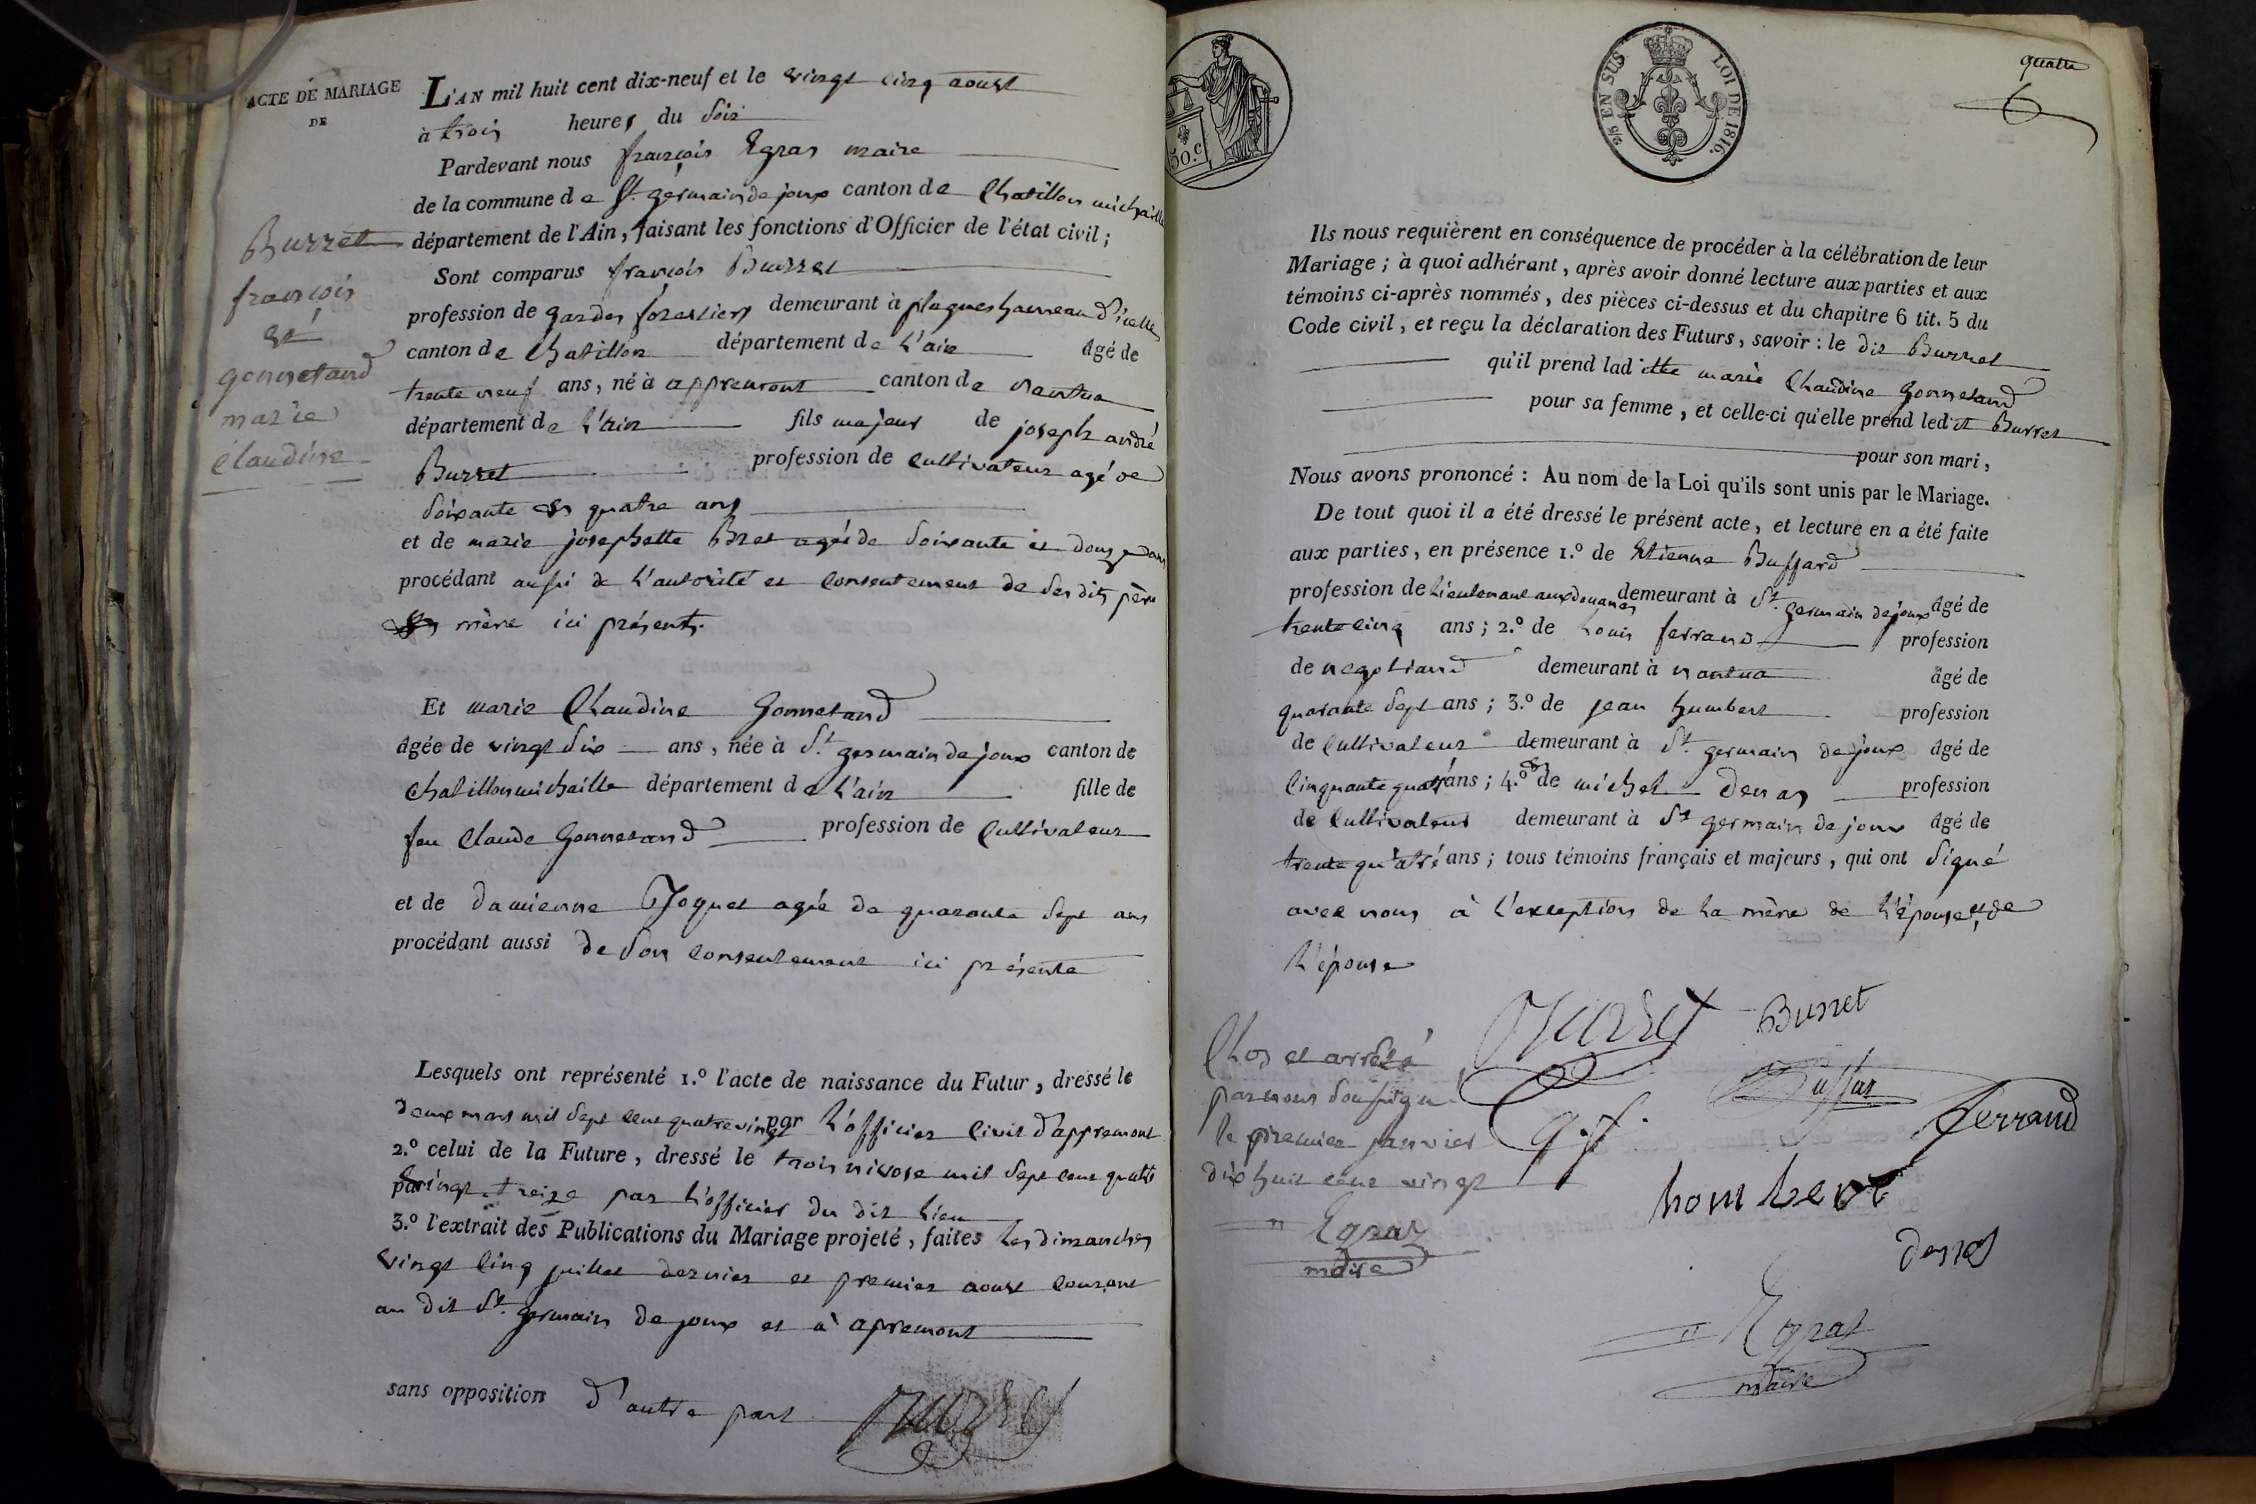 ACTE DE MARIAGE
DE
Burret
françois
et
gonnetand
marie
Claudine
L'AN mil huit cent dix-neuf et le vingt cinq aoust
à trois heures du soir
Pardevant nous françois Egraz maire
de la commune de St. germain de joux canton de Chatillon michaille
département de l'Ain, faisant les fonctions d'Officier de l'état civil;
Sont comparus françois Burret
profession de gardes forestiers demeurant à plagnes hameau d'icelle
canton de Chatillon département de L'ain âgé de
trente neuf ans, né à appremont canton de nantua
département de L'ain fils majeur de joseph andré
Burret profession de Cultivateur agé de
soixante et quatre ans
et de marie josephette Bret agée de soixante et douze ans
procédant aussi de L'autorité et Consentement de ses dits père
et mère ici présents.
Et marie Claudine Gonnetand
âgée de vingt six ans, née à St. germain de joux canton de
Chatillon michaille département de L'ain fille de
feu Claude Gonnetand profession de Cultivateur
et de damienne Joquet agée de quarante sept ans
procédant aussi de son Consentement ici présente
Lesquels ont représenté 1.º l'acte de naissance du Futur, dressé le
deux mars mil sept cent quatrevingt par L'officier Civil d'appremont
2.º celui de la Future, dressé le trois nivose mil sept cent quatre
par vingt treize par L'officier du dit Lieu
3.º l'extrait des Publications du Mariage projeté, faites les dimanches
vingt cinq juillet dernier et premier aoust Courant
au dit St. germain de joux et à apremont
sans opposition d'autre part
Burret
quatre
6
50.c
2/5 EN SUS. LOI DE 1816.
Ils nous requièrent en conséquence de procéder à la célébration de leur
Mariage; à quoi adhérant, après avoir donné lecture aux parties et aux
témoins ci-après nommés, des pièces ci-dessus et du chapitre 6 tit. 5 du
Code civil, et reçu la déclaration des Futurs, savoir: le dit Burret
qu'il prend laditte marie Claudine Gonnetand
pour sa femme, et celle-ci qu'elle prend ledit Burret
pour son mari,
Nous avons prononcé: Au nom de la Loi qu'ils sont unis par le Mariage.
De tout quoi il a été dressé le présent acte, et lecture en a été faite
aux parties, en présence 1.º de Etienne Buffard
profession de Lieutenant aux douanes demeurant à St. germain de joux âgé de
trente cinq ans; 2.º de Louis ferrand profession
de negotiand demeurant à nantua âgé de
quarante sept ans; 3.º de jean humbert profession
de Cultivateur demeurant à St. germain de joux âgé de
Cinquante quatre ans; 4.º et de michel profession
de Cultivateur demeurant à St germain de joux âgé de
trente quatre ans; tous témoins français et majeurs, qui ont signé
avec nous à l'exceptions de La mère de L'épouse et de
L'épouse
Burret
Burret
Buffar
ferrand
hombert
Egraz
maire
Clos et arrêté
par nous soussigné
le premier janvier
dix huit cent vingt
Egraz
maire